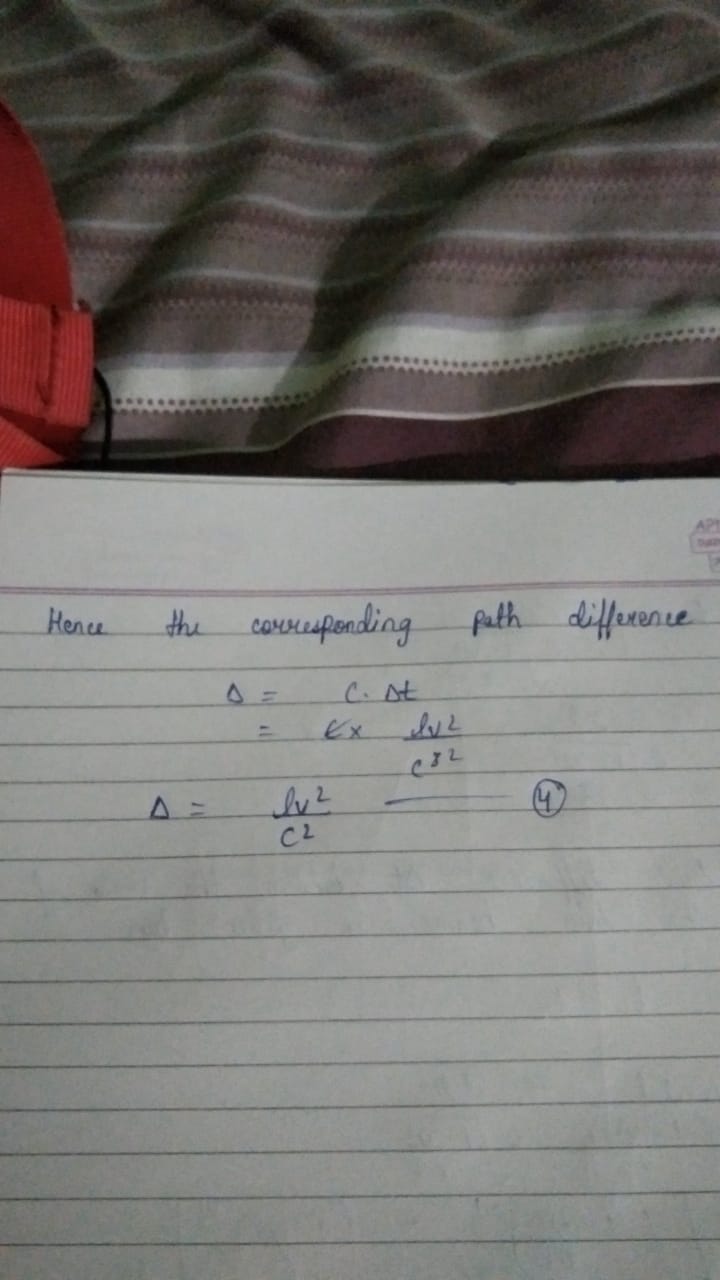 Hence the corresponding path difference
Δ = C. Δt
= c x lv² / c³ ²
Δ = lv² / c² —— ④